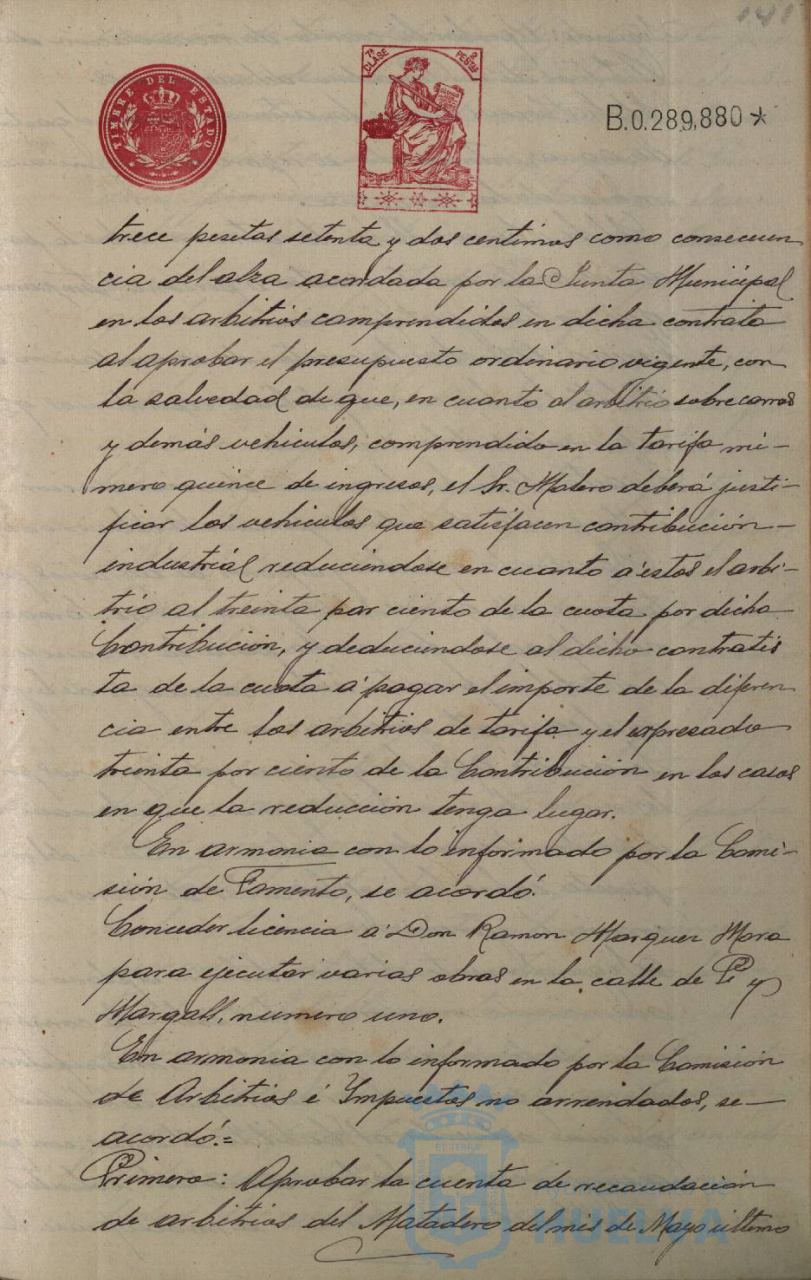 141
TIMBRE DEL ESTADO
7ª CLASE 2 PESETAS
B.0.289,880 *
trece pesetas setenta y dos centimos como consecuen
cia del alza acordada por la Junta Municipal
en los arbitrios comprendidos en dicha contrata
al aprobar el presupuesto ordinario vigente, con
la salvedad de que, en cuanto al arbitrio sobre carros
y demás vehiculos, comprendido en la tarifa nú-
mero quince de ingresos, el Sr. Malero deberá justi-
ficar los vehiculos que satisfacen contribución
industrial reduciendose en cuanto a éstos el arbi-
trio al treinta por ciento de la cuota por dicha
Contribución, y deduciendose al dicho contratis
ta de la cuota á pagar el importe de la diferen
cia entre los arbitrios de tarifa y el expresado
treinta por ciento de la Contribución en los casos
en que la reducción tenga lugar.
En armonia con lo informado por la Comi-
sión de Fomento, se acordó.
Conceder licencia á Don Ramon Marquez Mora
para ejecutar varias obras en la calle de Pi y
Margall, numero uno.
En armonia con lo informado por la Comisión
de Arbitrios é Impuestos no arrendados, se
acordó.=
Primero: Aprobar la cuenta de recaudación
de arbitrios del Matadero del mes de Mayo último
HUELVA